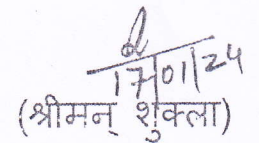 17/01/24
(श्रीमन् शुक्ला)